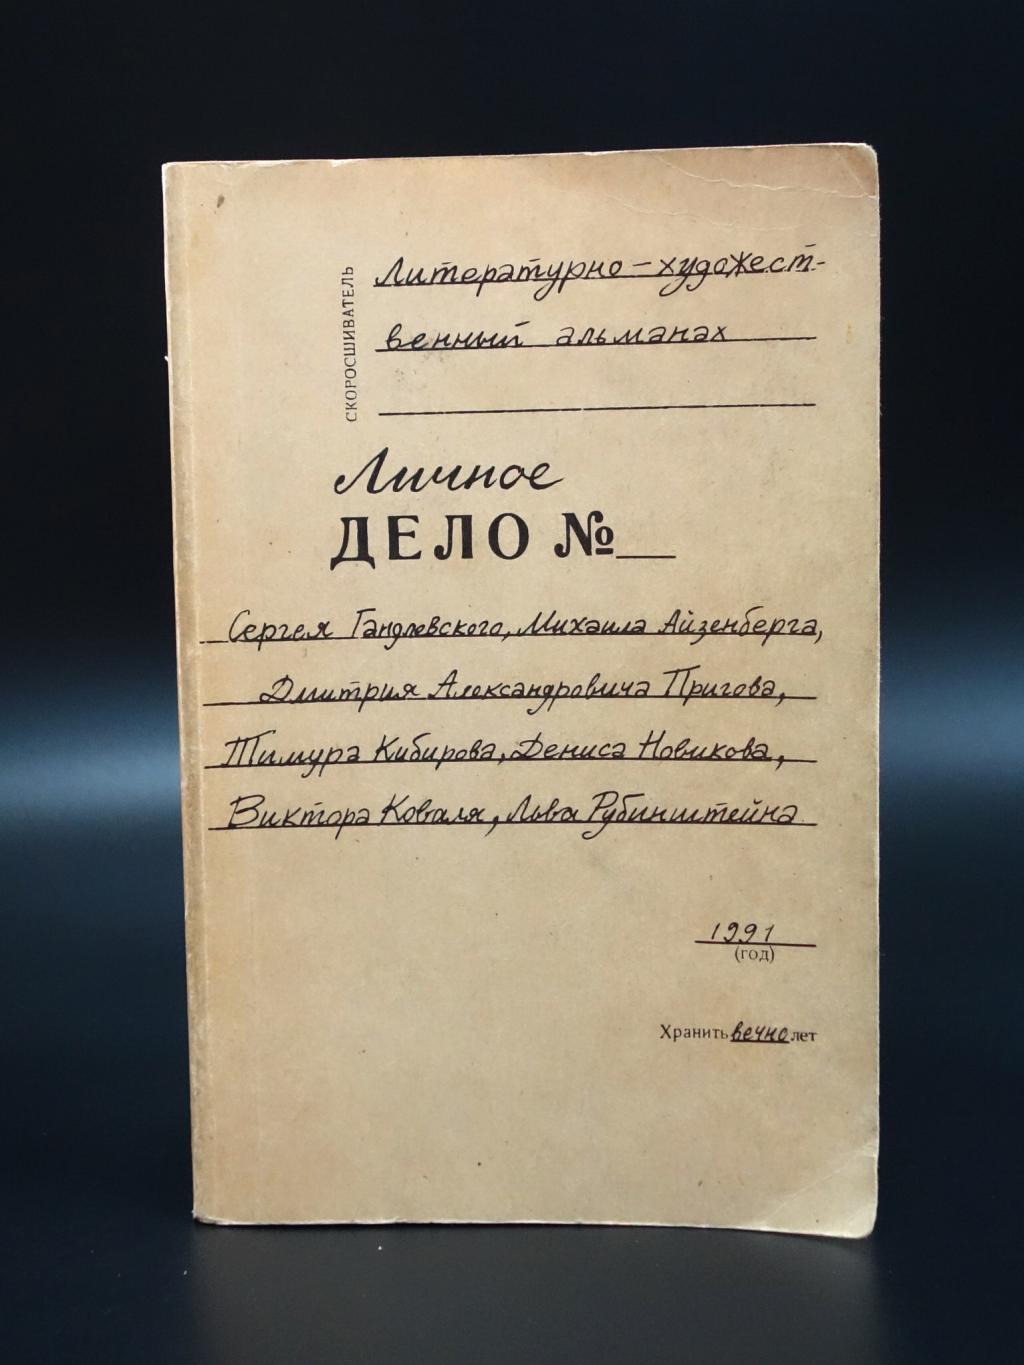 СКОРОСШИВАТЕЛЬ
Литературно-художест-
венный альманах
Личное
ДЕЛО №
Сергея Гандлевского, Михаила Айзенберга,
Дмитрия Александровича Пригова,
Тимура Кибирова, Дениса Новикова,
Виктора Коваля, Льва Рубинштейна
1991
(год)
Хранить вечно лет